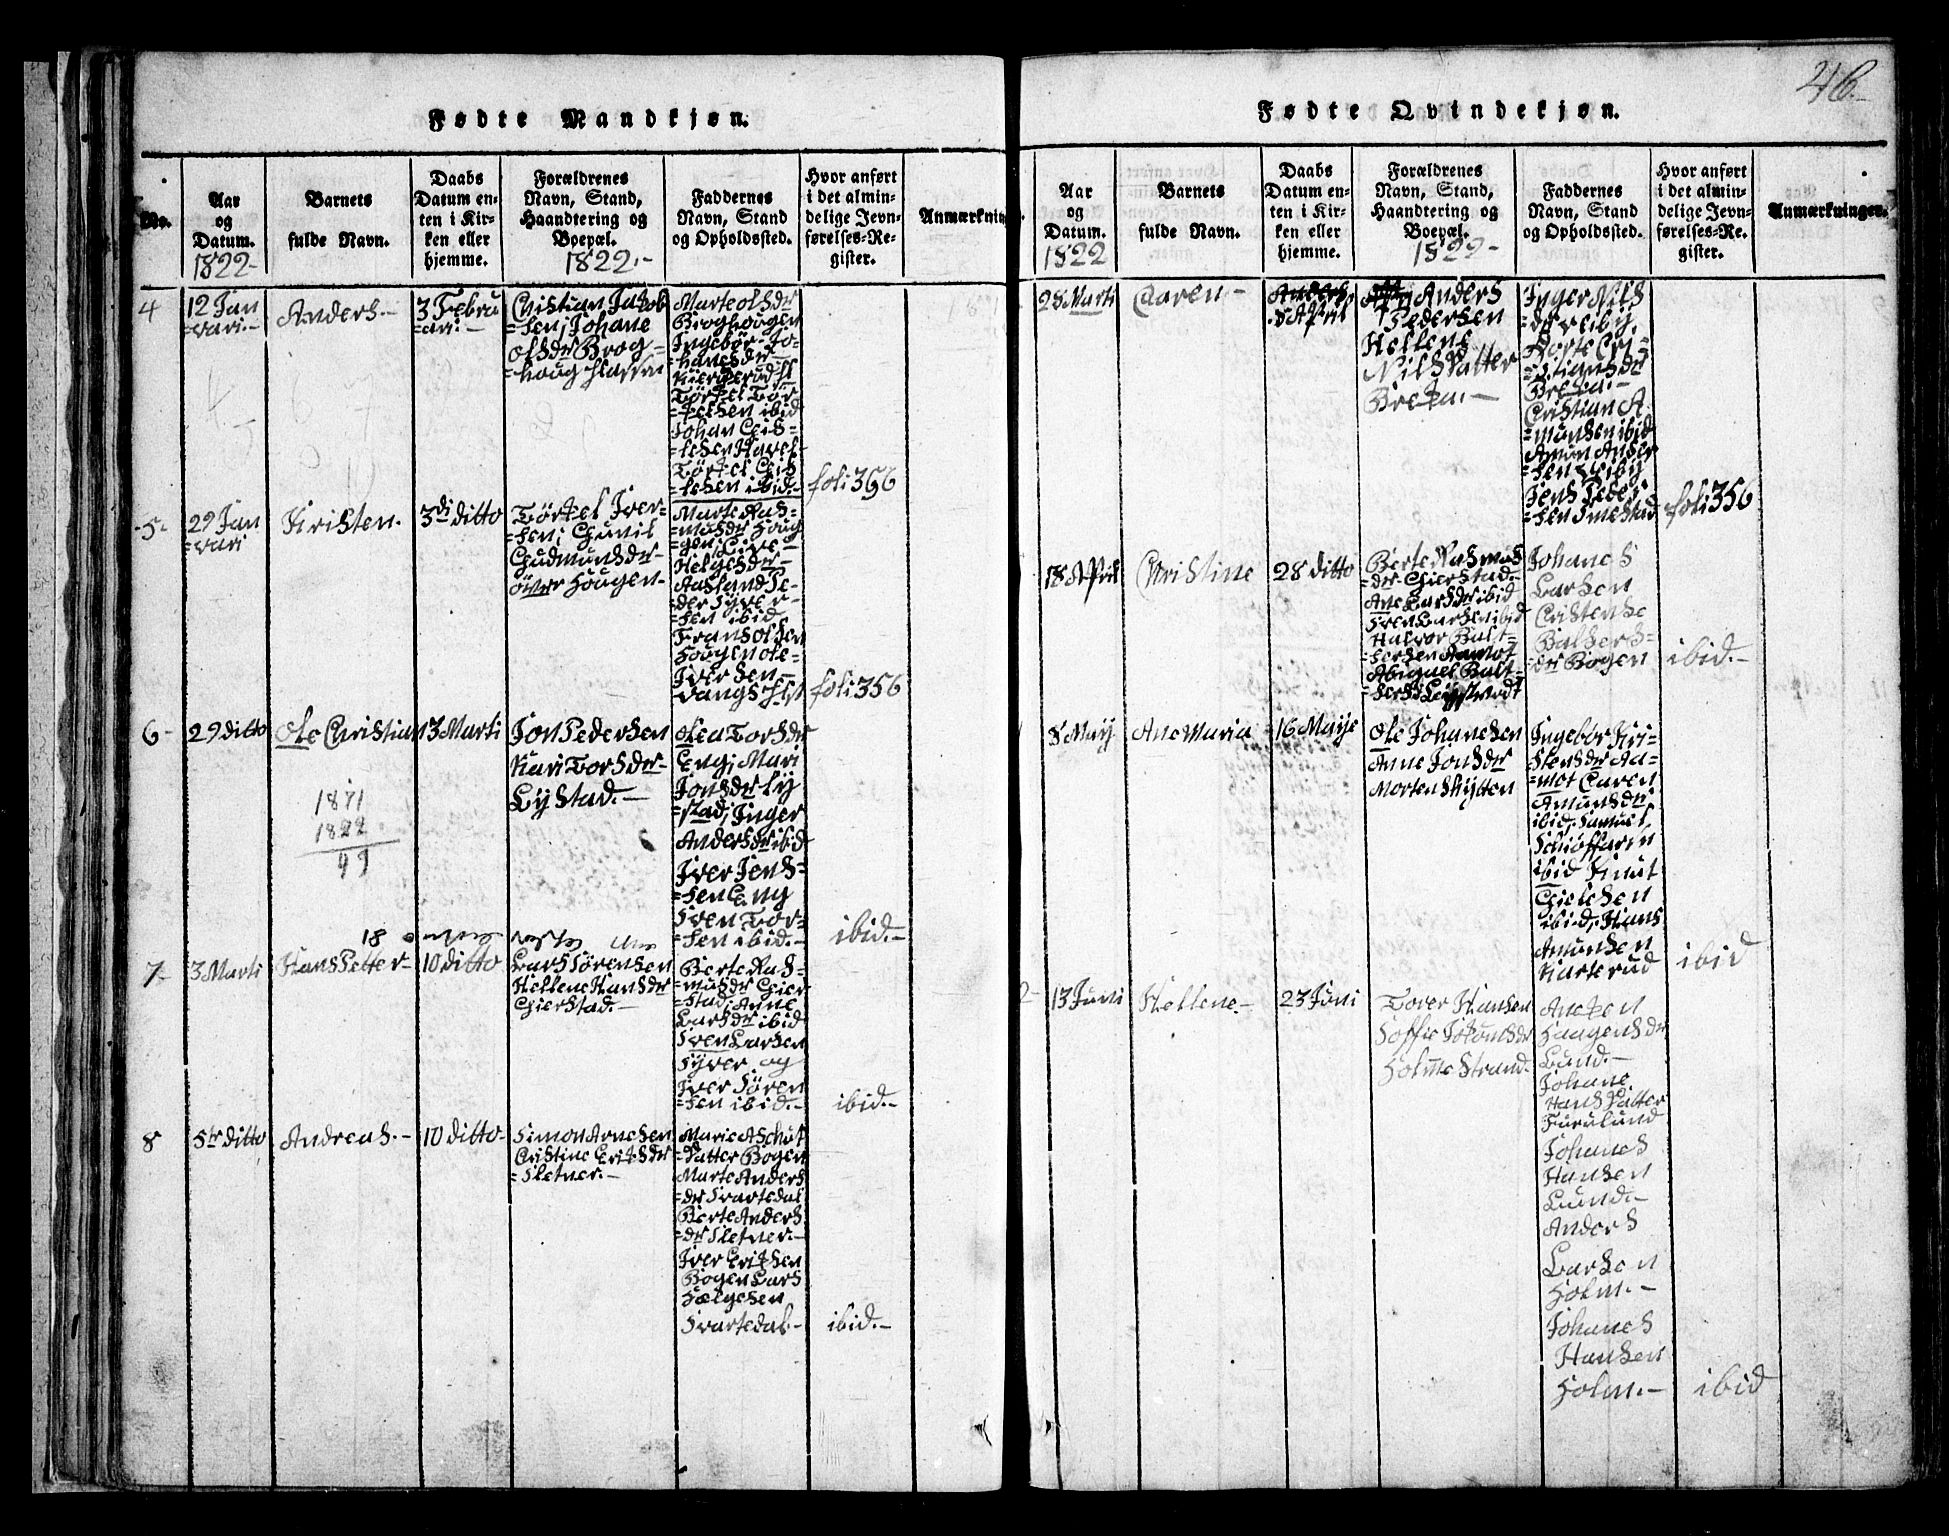 46.-
Fødte Mandkjøn.
No.
Aar
og
Datum.
1822-
Barnets
fulde Navn.
Daabs
Datum en-
ten i Kir-
ken eller
hjemme.
Forældrenes
Navn, Stand,
Haandtering og
Boepæl.
1822.-
Faddernes
Navn, Stand
og Opholdssted.
Hvor anført
i det almin-
delige Jevn-
førelses-Re-
gister.
Anmærkning
4
12 Jan
=vari.-
Anders.-
3 Febru
=ari.-
Cristian Jakob
=sen, Johane
olsdr Brog-
=houg
Marte olsdr
Broghougen
Ingebør Jo-
=hanesdr
Tørkel Tør-
=kelsen ibid
Johan Geis-
=lesen
Tørkel Geis
=lesen ibid.-
foli 356
5.
29 Jan
=vari
Kristen.
3di ditto
Tørkel Iver-
=sen, Gunil
Gudmunsdr-
över Hougen-
Marte Ras-
=musdr Houg
=gen, Live-
Helgesdr-
Aasland Pe-
=der Syver-
=sen ibid
Frans olsen
Hougen ole-
Iversen-
foli 356
6-
29 ditto
Ole Christian
13 Marti
Jon Pedersen
Kari Torsdr-
Lystad.-
Olea Torsdr
Eng, Mari
Jonsdr Ly
=stad, Inger
Andersdr ibid
Iver Jens-
=sen Eng
Sven Tor-
=sen ibid.-
ibid.-
1871
1822
49
18
7-
3 Marti
Hans Petter-
10 ditto
Lars Sörensen
Hellene Hansdr
Gierstad.-
Berte Ras-
=musdr Geier
=stad, Anne
Larsdr ibid
Sven Larsen
Syver og
Iver Sören
=sen ibid.-
ibid.-
8
5te ditto
Andreas.-
10 ditto-
Simon Arnesen
Cristine Eriksdr
=Sletner.-
Marie Aschöt
=Datter Bogen
Marte Anders
=dr Svartedal
Berte Anders
=dr Sletner.-
Iver Eriksen
Bogen Lars
Hælgesen
Svartedal-
ibid.-
Fødte Qvindekjøn.
Aar
og
Datum.
1822
Barnets
fulde Navn.
Daabs
Datum en-
ten i Kir-
ken eller
hjemme.
Forældrenes
Navn, Stand,
Haandtering og
Boepæl.
1822-
Faddernes
Navn, Stand
og Opholdssted.
Hvor anført
i det almin-
delige Jevn-
førelses-Re-
gister.
Anmærkninger.
28 Marti
Caren-
April
Anders
Pedersen
Hellene
Nilsdatter
Breka.-
Inger Nils
=dr
Dorte Cri-
=stiansdr
Breka.-
Cristian A
=munsen ibid
Amun Ander
=sen
Jens Peder
=sen
foli 356
18 April
Christine
28 ditto
Berte Rasmus
=dr Gierstad.-
Ane Larsdr ibid
Sven Larsen ibid
Halvor Balt-
=sersen Aamot
Abiguel Balt-
Johanes
Larsen
Cristense
Balsers-
=dr Bogen
ibid.-
8 Maij
Ane Maria
16 Maije
Ole Johanesen
Anne Jonsdr
Morten Skytten
Ingebør Kri-
=stensdr Aa-
=mot Caren
Amunsdr
ibid, Samuel
ibid Knut
Gielesen
ibid, Hans
Amunsen
Karterud
ibid
2-
13 Juni
Hellene.-
23 Juni
Tover Hansen
Soffie
Holme Strand.
Anken
Haagensdr
Lund.-
Johane
Hans Datter
Furulund
Johanes
Hansen
Lund.-
Anders
Larsen
Holm.-
Johanes
Hansen
Holm.-
ibid